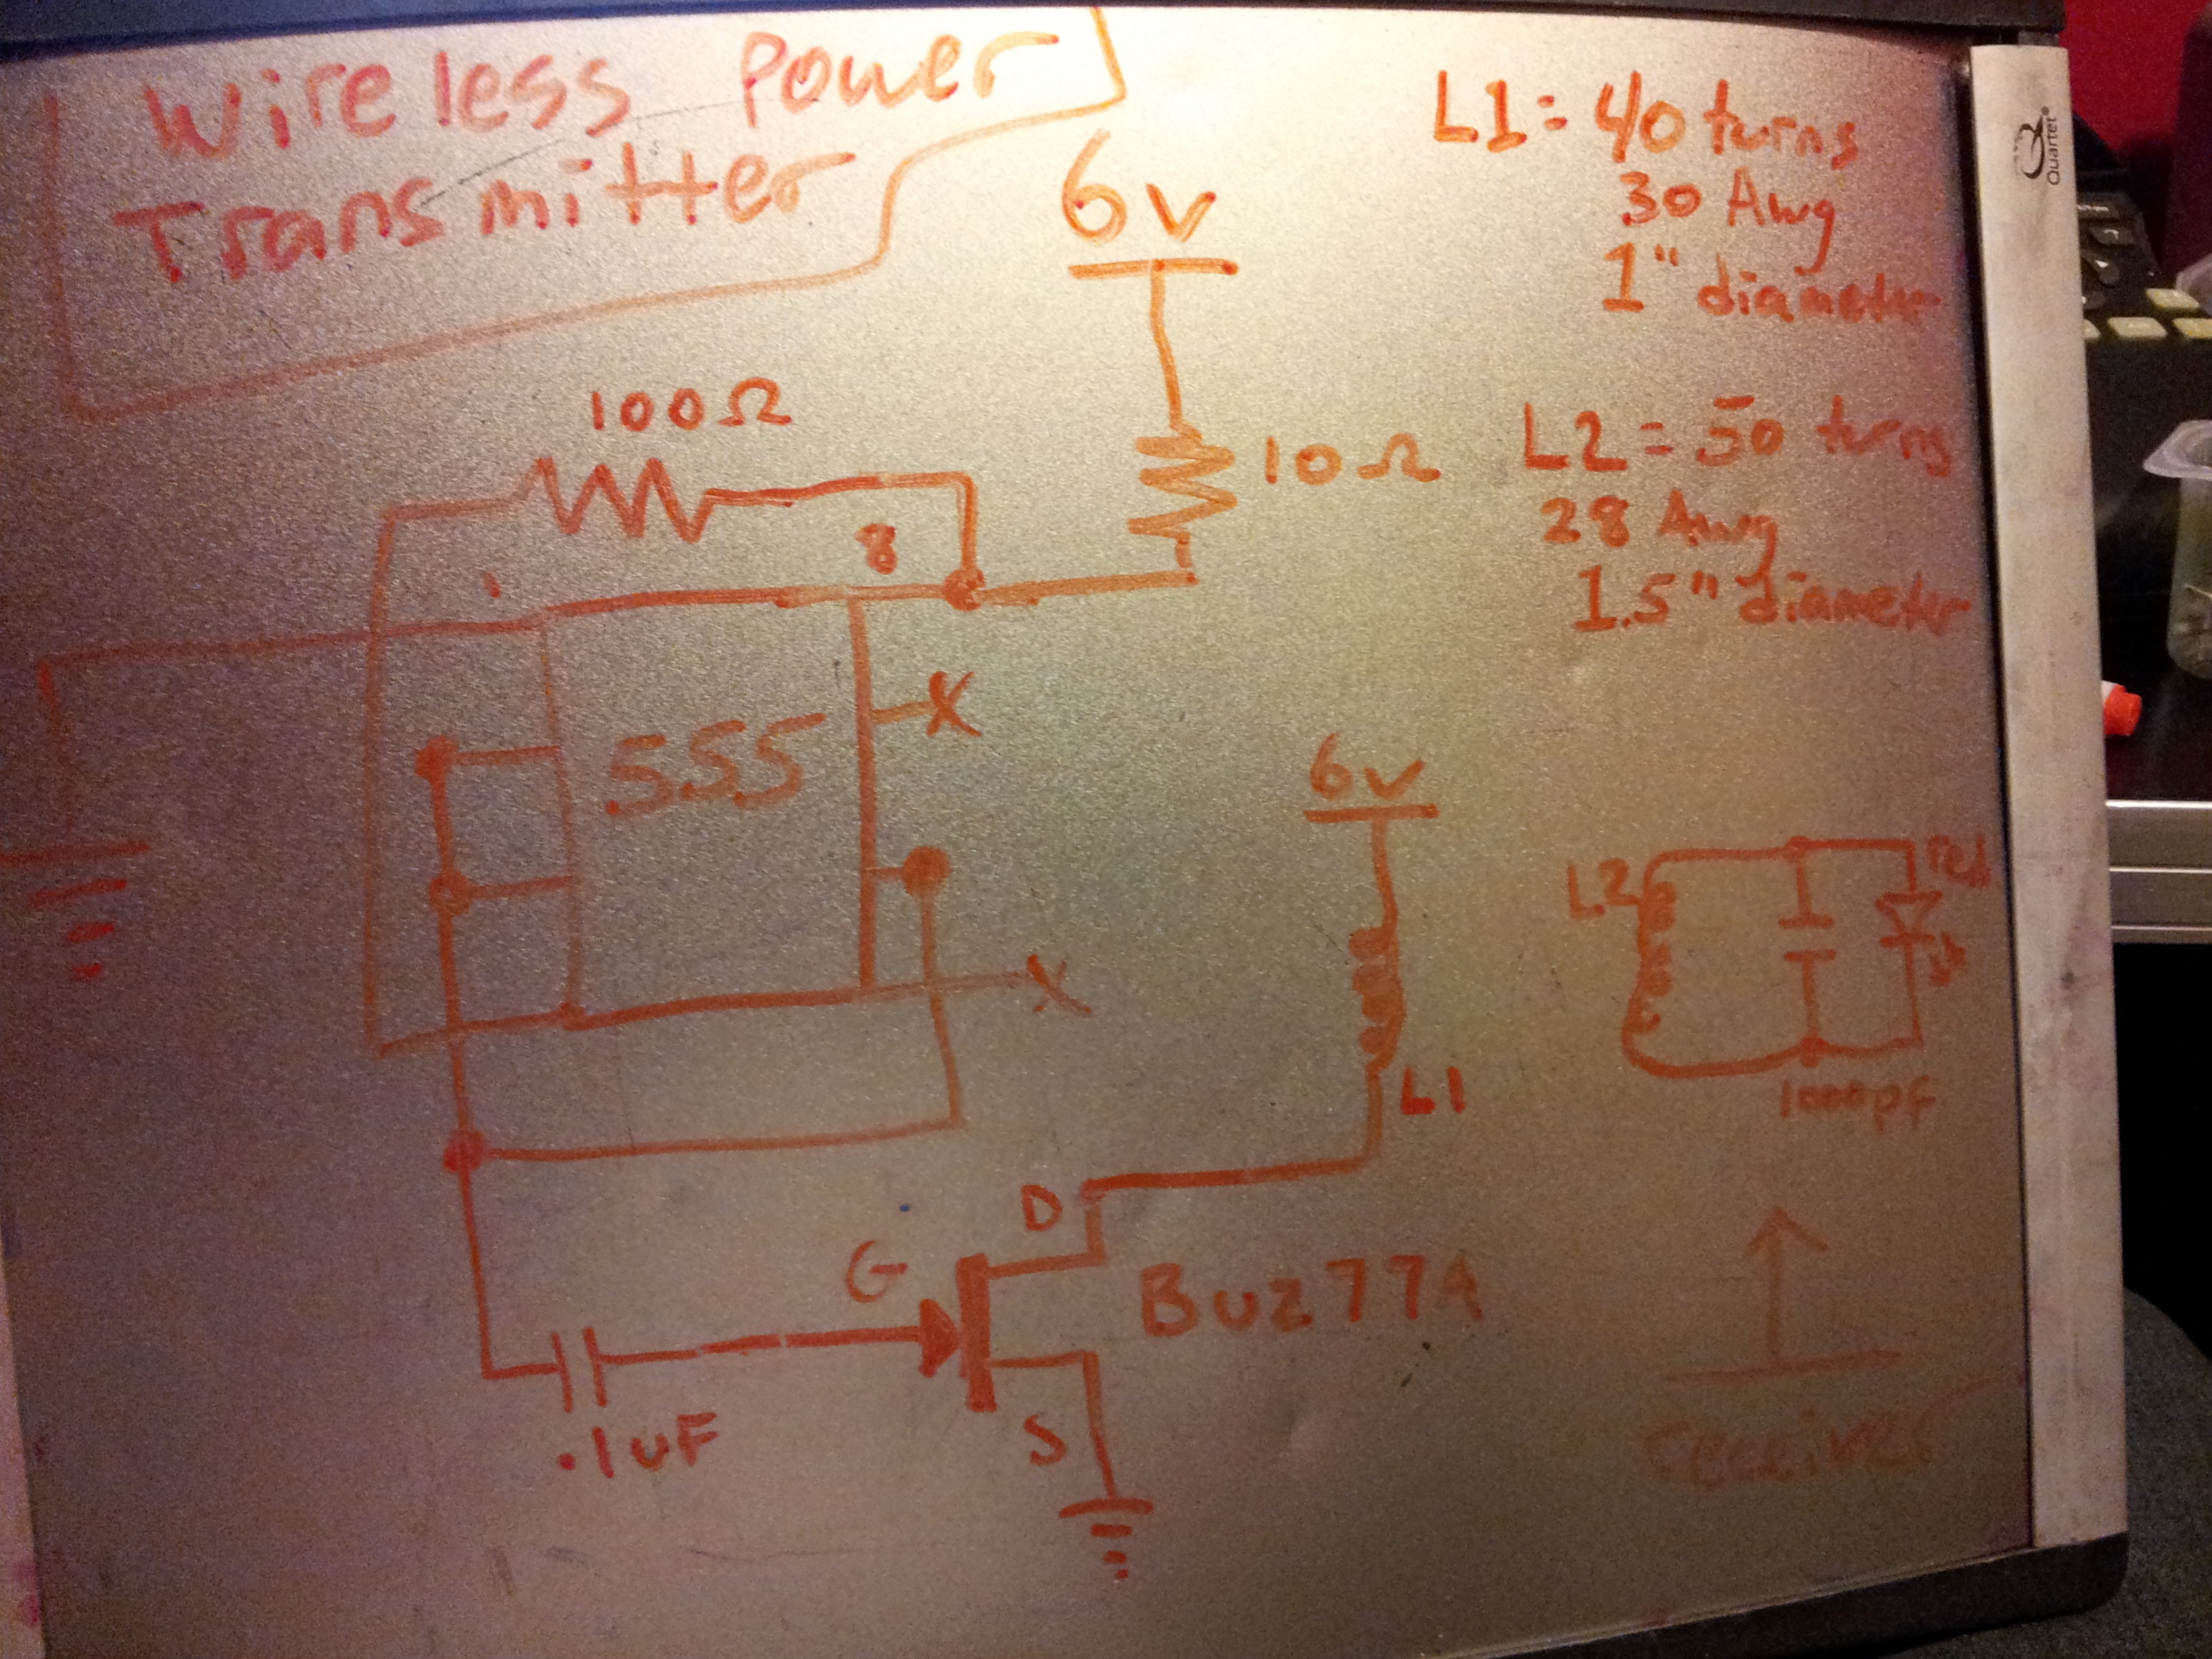 Wireless Power
Transmitter
6v
100Ω
10Ω
1
8
555
X
X
L1 = 40 turns
30 Awg
1" diameter
L2 = 50 turns
28 Awg
1.5" diameter
6v
L1
L2
red
1000pf
D
G
S
BUZ77A
.1uF
receiver
Quartet